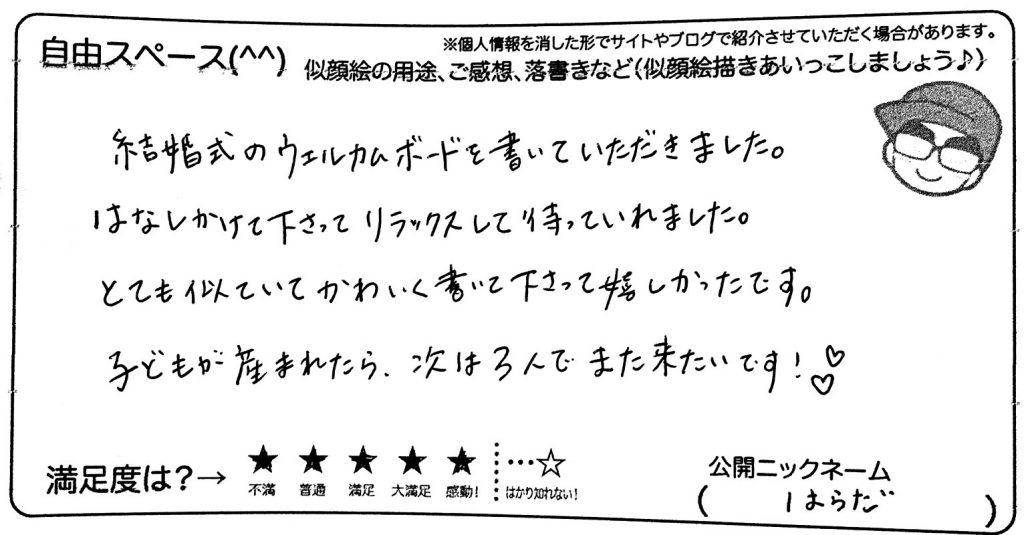 自由スペース(^^)
※個人情報を消した形でサイトやブログで紹介させていただく場合があります。
似顔絵の用途、ご感想、落書きなど(似顔絵描きあいっこしましょう♪)
結婚式のウェルカムボードを書いていただきました。
はなしかけて下さってリラックスして待っていれました。
とても似ていてかわいく書いて下さって嬉しかったです。
子どもが産まれたら、次は3人でまた来たいです!♡♡
満足度は?→ ★ ★ ★ ★ ★ …☆
不満 普通 満足 大満足 感動! はかり知れない!
公開ニックネーム
( はらだ )